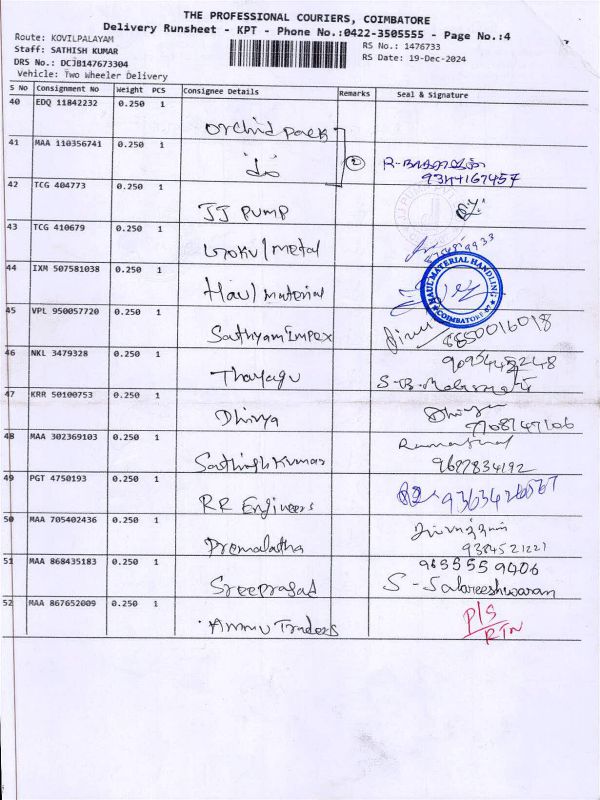 THE PROFESSIONAL COURIERS, COIMBATORE
Delivery Runsheet - KPT - Phone No.:0422-3505555 - Page No.:4
Route: KOVILPALAYAM
RS No.: 1476733
Staff: SATHISH KUMAR
RS Date: 19-Dec-2024
DRS No.: DCJB147673304
Vehicle: Two Wheeler Delivery
S No Consignment No Weight PCS Consignee Details Remarks Seal & Signature
40 EDQ 11842232 0.250 1
orchid pack
41 MAA 110356741 0.250 1
2
9344167457
42 TCG 404773 0.250 1
JJ PUMP
43 TCG 410679 0.250 1
Gokul Metal
44 IXM 507581038 0.250 1
Haul Material
HAUL MATERIAL HANDLING
COIMBATORE
45 VPL 950057720 0.250 1
Sathyam Impex
8850016018
46 NKL 3479328 0.250 1
Thayagu
47 KRR 50100753 0.250 1
Dhivya
Dhivya
9708747106
48 MAA 302369103 0.250 1
Sathish Kumar
9687834192
49 PGT 4750193 0.250 1
RR Engineers
50 MAA 705402436 0.250 1
Premalatha
9384521221
51 MAA 868435183 0.250 1
Sreeprasad
9655559406
S-Sabareeshwaran
52 MAA 867652009 0.250 1
Ammu Traders
P/S
RTN